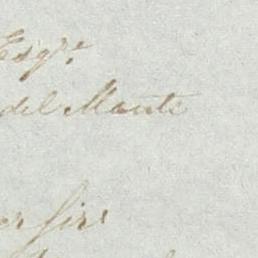 Esqre.
del Monte
er Sir